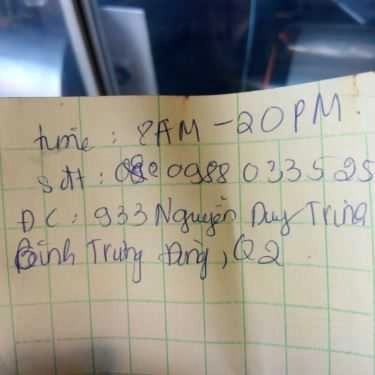 time : 8AM - 20PM.
sđt : 0988 033525
ĐC : 933 Nguyễn Duy Trinh
Bình Trưng Đông, Q2